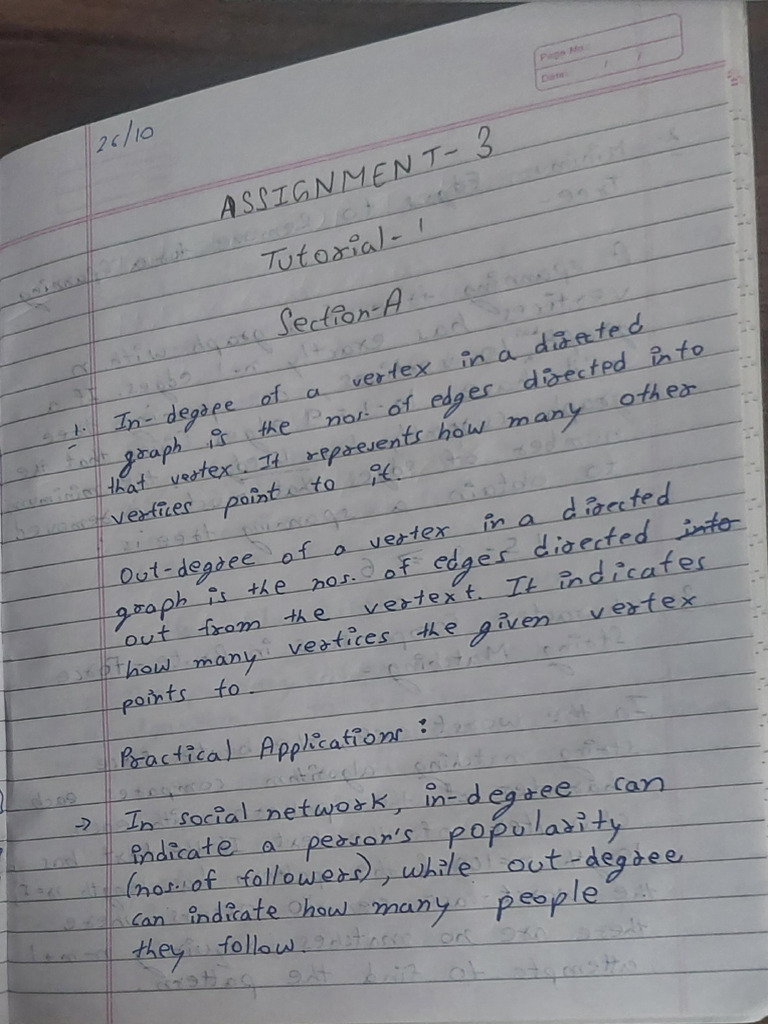 Page No.:
Date: / /
26/10
ASSIGNMENT-3
Tutorial-1
Section-A
1. In-degree of a vertex in a directed
graph is the nos. of edges directed into
that vertex. It represents how many other
vertices point to it.
Out-degree of a vertex in a directed
graph is the nos. of edges directed into
out from the vertext. It indicates
how many vertices the given vertex
points to.
Practical Applications:
→ In social network, in-degree can
indicate a person's popularity
(nos. of followers), while out-degree
can indicate how many people
they follow.